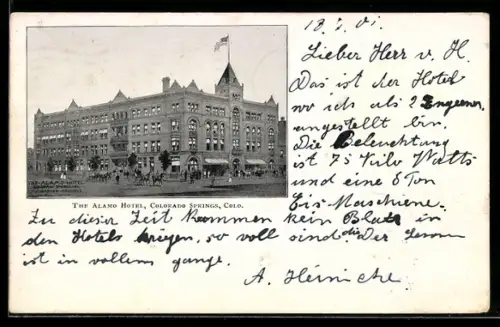 18.7.01.
Lieber Herr v. H.
Das ist der Hotel
wo ich als 2 Engeener
angestellt bin.
Die Beleuchtung
ist 75 Kilo Watts
und eine 8 Ton
Eis-Maschiene.
THE ALAMO HOTEL, COLORADO SPRINGS, COLO.
Zu dieser Zeit kommen kein Blatz in
den Hotels kriegen, so voll sind die. Der
ist in vollem gange.
A. Heinicke